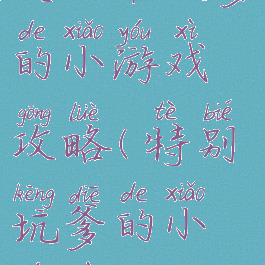 de xiǎo yóu xì
的小游戏
gōng lüè tè bié
攻略(特别
kēng diē de xiǎo
坑爹的小